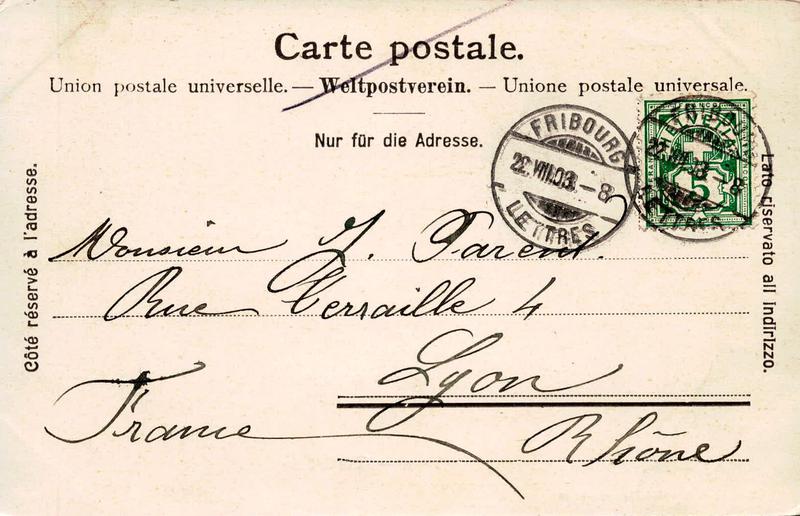 Carte postale.
Union postale universelle. — Weltpostverein. — Unione postale universale.
Nur für die Adresse.
Côté réservé à l'adresse.
Lato riservato all indirizzo.
FRIBOURG
22.VIII.03.–8
LETTRES
5
Monsieur J. Parent.
Rue Terraille 4
Lyon
France
Rhône